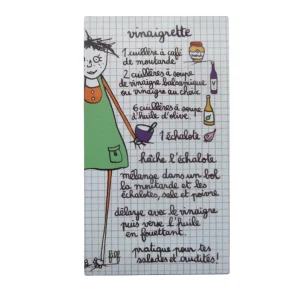 vinaigrette
1 cuillère à café
de moutarde
2 cuillères à soupe
de vinaigre balsamique
ou vinaigre au choix
6 cuillères à soupe
d'huile d'olive.
1 échalote
hâche l'échalote
mélange dans un bol
la moutarde et les
échalotes, sele et poivre
délaye avec le vinaigre
puis verse l'huile
en fouettant.
pratique pour tes
salades et crudités!